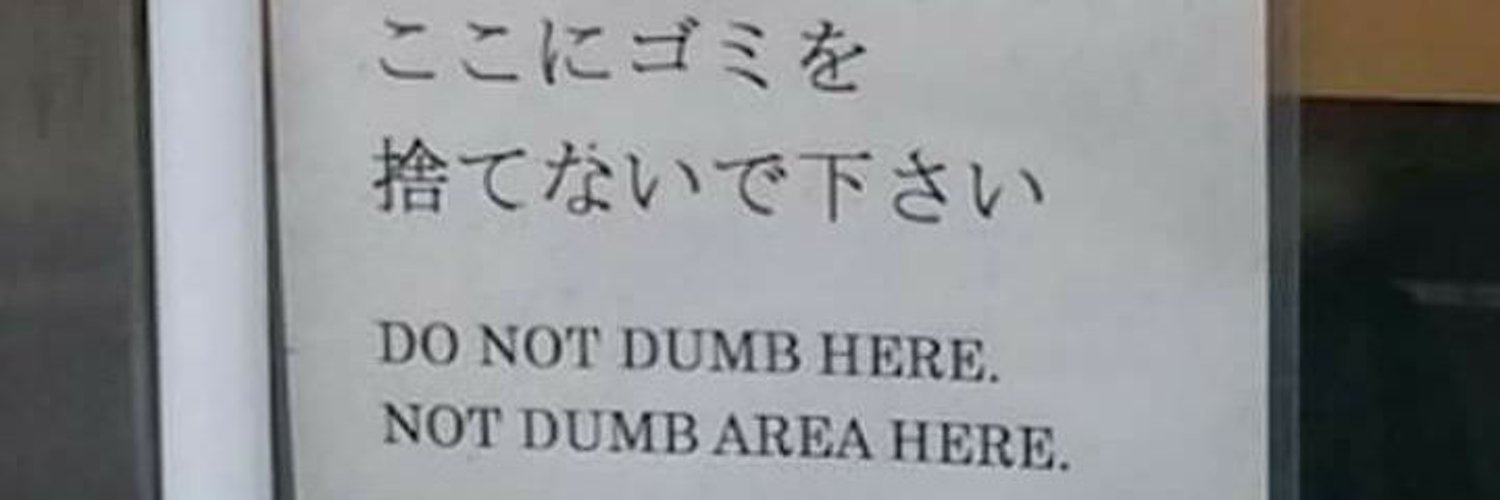 ここにゴミを
捨てないで下さい
DO NOT DUMB HERE.
NOT DUMB AREA HERE.